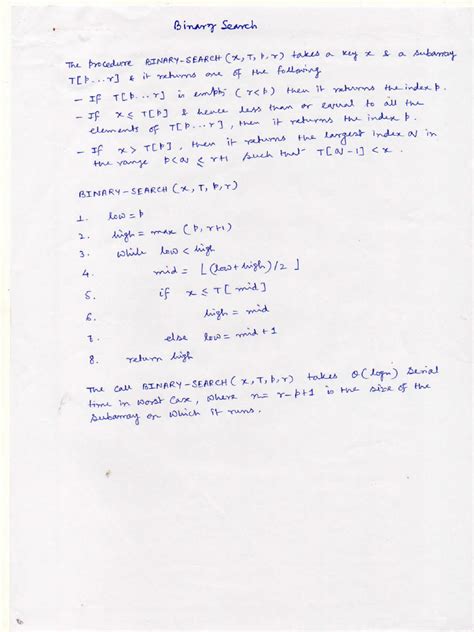 Binary Search
The Procedure BINARY-SEARCH (x, T, p, r) takes a key x & a subarray
T[p...r] & it returns one of the following
- If T[p...r] is empty (r<p) then it returns the index p.
- If x ≤ T[p] & hence less than or equal to all the
elements of T[p...r], then it returns the index p.
- If x > T[p], then it returns the largest index q in
the range p<q ≤ r+1 such that T[q-1] < x.
BINARY-SEARCH (x, T, p, r)
1. low = p
2. high = max (p, r+1)
3. While low < high
4. mid = ⌊(low+high)/2⌋
5. if x ≤ T[mid]
6. high = mid
7. else low = mid + 1
8. return high
The call BINARY-SEARCH (x, T, p, r) takes Θ(logn) Serial
time in worst case, where n = r-p+1 is the size of the
Subarray on which it runs.